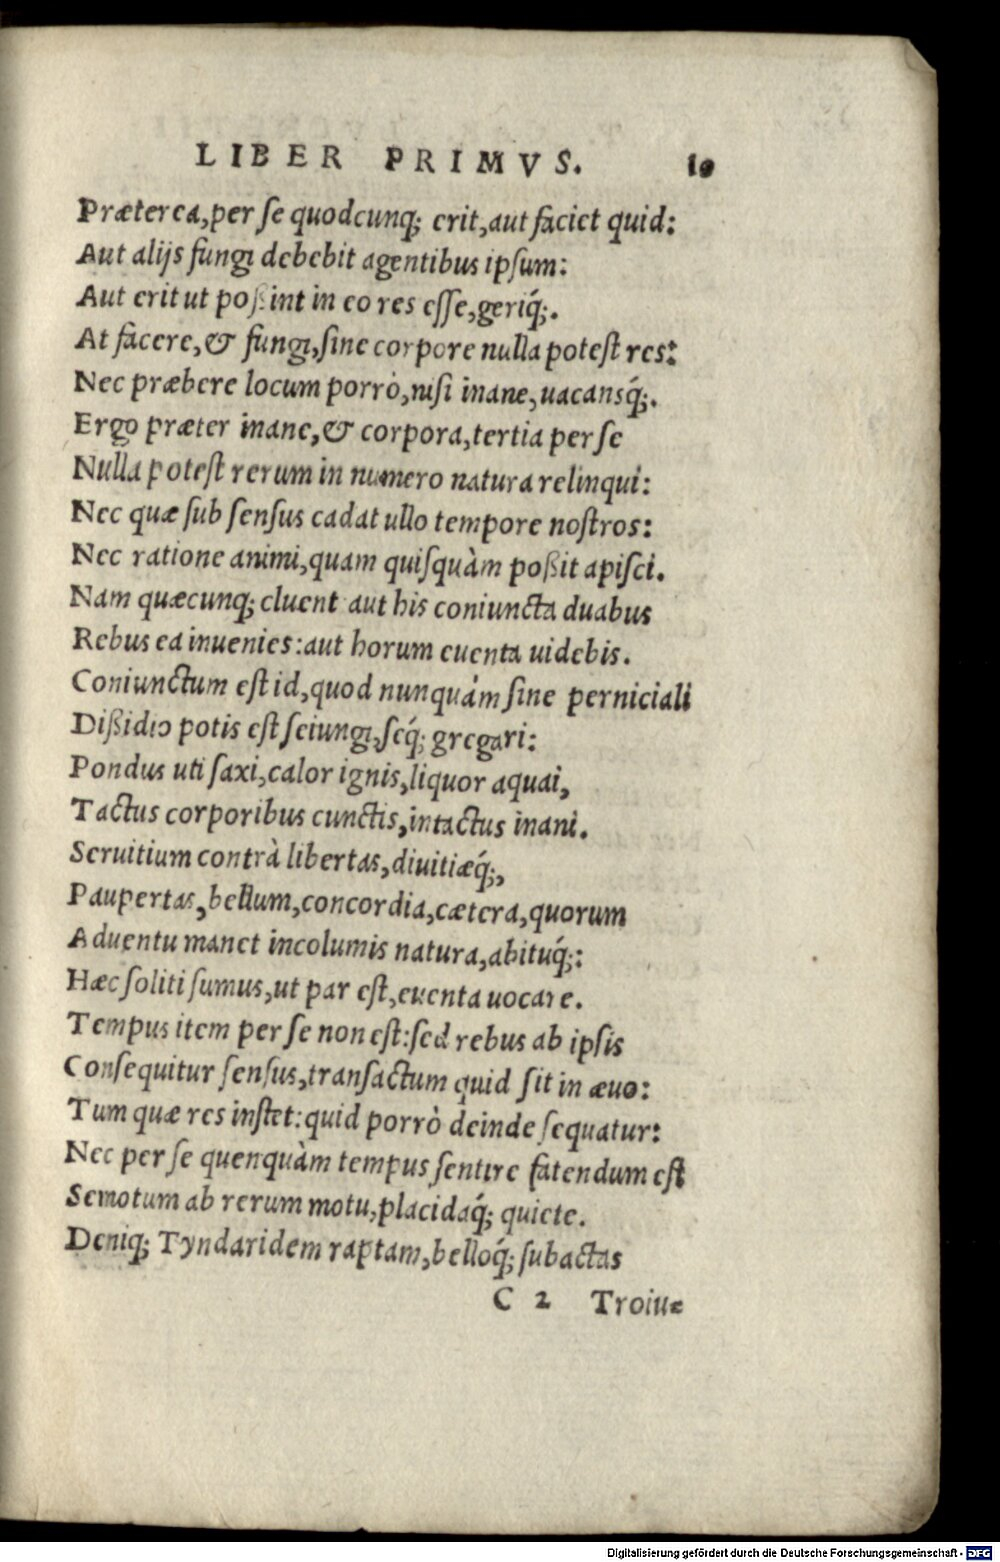 LIBER PRIMVS. 19
Præterea, per ſe quodcunq; erit, aut faciet quid:
Aut alijs fungi debebit agentibus ipſum:
Aut erit ut poßint in eo res eſſe, geriq́;.
At facere, & fungi, ſine corpore nulla poteſt res:
Nec præbere locum porrò, niſi inane, uacansq́;.
Ergo præter inane, & corpora, tertia per ſe
Nulla poteſt rerum in numero natura relinqui:
Nec quæ ſub ſenſus cadat ullo tempore noſtros:
Nec ratione animi, quam quiſquàm poßit apiſci.
Nam quæcunq; cluent aut his coniuncta duabus
Rebus ea inuenies: aut horum euenta uidebis.
Coniunctum eſt id, quod nunquàm ſine perniciali
Dißidio potis eſt ſeiungi, ſeq́; gregari:
Pondus uti ſaxi, calor ignis, liquor aquai,
Tactus corporibus cunctis, intactus inani.
Seruitium contrà libertas, diuitiæq́;,
Paupertas, bellum, concordia, cætera, quorum
Aduentu manet incolumis natura, abituq́;:
Hæc ſoliti ſumus, ut par eſt, euenta uocare.
Tempus item per ſe non eſt: ſed rebus ab ipſis
Conſequitur ſenſus, tranſactum quid ſit in æuo:
Tum quæ res inſtet: quid porrò deinde ſequatur:
Nec per ſe quenquàm tempus ſentire fatendum eſt
Semotum ab rerum motu, placidaq́; quiete.
Deniq; Tyndaridem raptam, belloq́; ſubactas
C 2 Troiu=
Digitalisierung gefördert durch die Deutsche Forschungsgemeinschaft - DFG